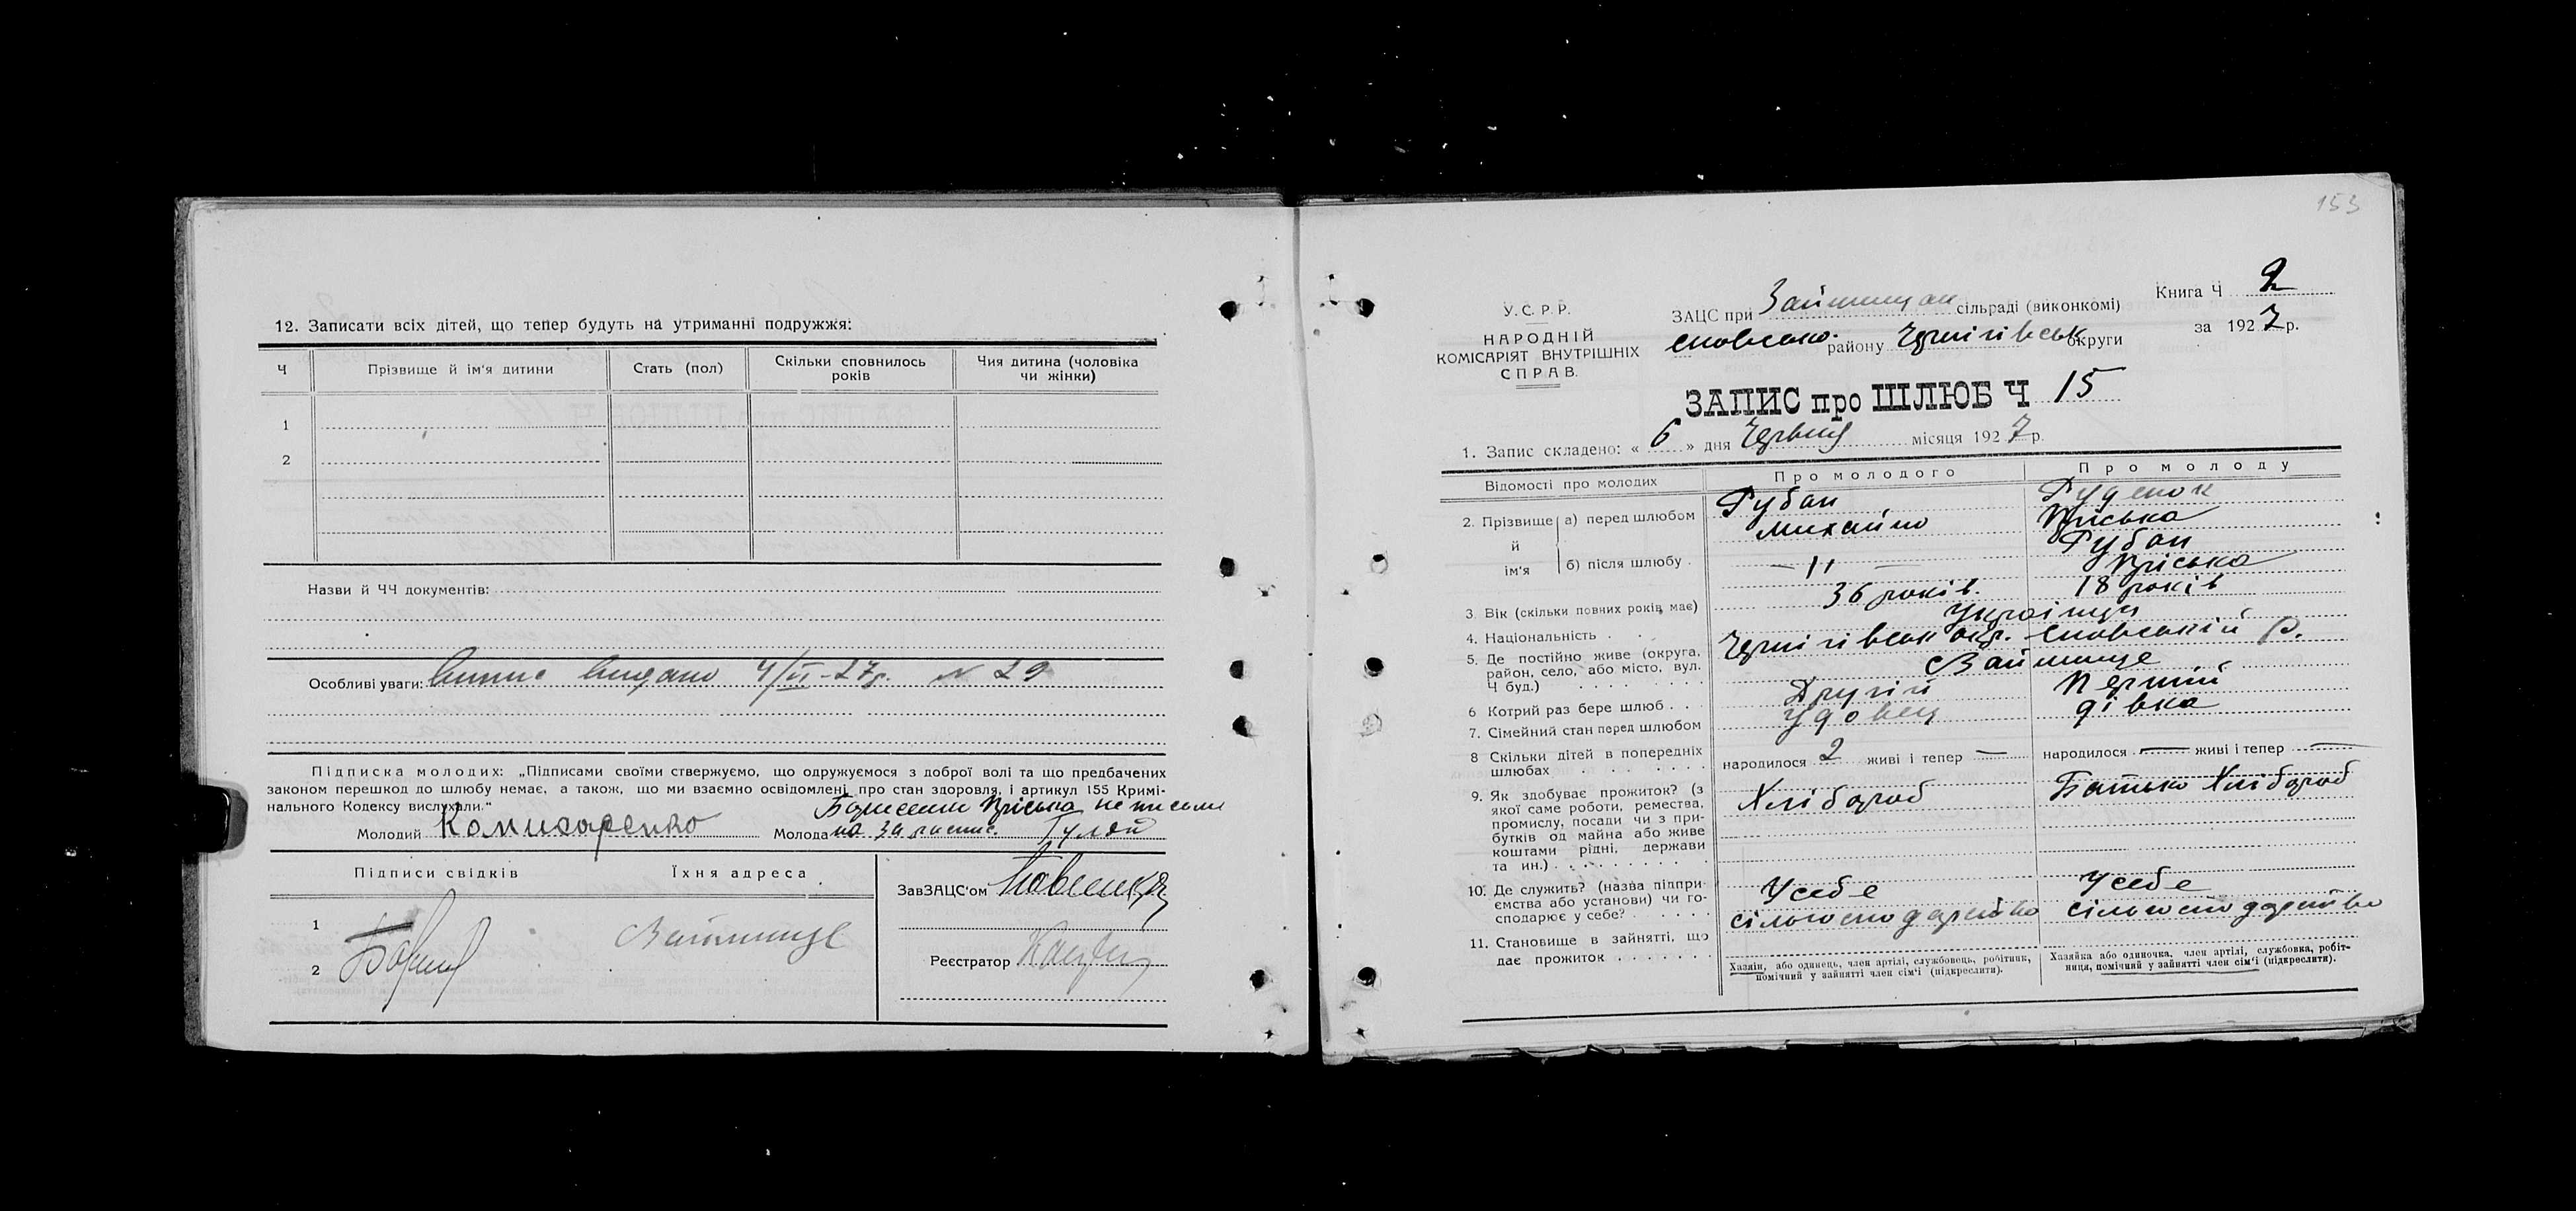 12. Записати всіх дітей, що тепер будуть на утриманні подружжя:
Ч
Прізвище й ім'я дитини
Стать (пол)
Скільки сповнилось
років
Чия дитина (чоловіка
чи жінки)
1
2
Назви й ЧЧ документів:
Особливі уваги: Випис видано 4/VI-27р. № 29
Підписка молодих: „Підписами своїми стверджуємо, що одружуємося з доброї волі та що предбачених
законом перешкод до шлюбу немає, а також, що ми взаємно освідомлені про стан здоровля, і артикул 155 Кримі-
нального Кодексу вислухали."
Приська не письм
Молодий Комисаренко Молода на за
Підписи свідків
Їхня адреса
ЗавЗАЦС'ом
1
2
Займище
Реєстратор
153
У.С.Р.Р.
НАРОДНІЙ
КОМІСАРІЯТ ВНУТРІШНІХ
СПРАВ.
ЗАЦС при Займищан сільраді (виконкомі)
Сновсько. району Чернігівськ округи
Книга Ч 2
за 1927 р.
ЗАПИС про ШЛЮБ Ч 15
1. Запис складено: « 6 » дня Червня місяця 1927 р.
Відомості про молодих
Про молодого
Про молоду
2. Прізвище й ім'я
а) перед шлюбом
Рубан
Михайло
Руденок
Приська
б) після шлюбу
— 11 —
Рубан
Приська
3. Вік (скільки повних років, має)
36 років.
18 років
4. Національність
Українци
5. Де постійно живе (округа,
район, село, або місто, вул.
Ч буд.)
Чернігівськ окр. Сновській р.
Займище
6 Котрий раз бере шлюб
Другій
Перший
7. Сімейний стан перед шлюбом
Удовец
дівка
8 Скільки дітей в попередніх
шлюбах
народилося 2 живі і тепер —
народилося — живі і тепер —
9. Як здобуває прожиток? (з
якої саме роботи, ремества,
промислу, посади чи з при-
бутків од майна або живе
коштами рідні, держави
та ин.)
Хлібороб
Батько Хлібороб
10. Де служить? (назва підпри-
ємства або установи) чи го-
сподарює у себе?
У себе
сільгосподарство
У себе
сільгосподарство
11. Становище в зайнятті, що
дає прожиток
Хазяїн, або одинець, член артілі, службовець, робітник,
помічний у зайнятті член сім'ї (підкреслити).
Хазяйка або одиночка, член артілі, службовка, робіт-
ниця, помічний у зайнятті член сім'ї (підкреслити).